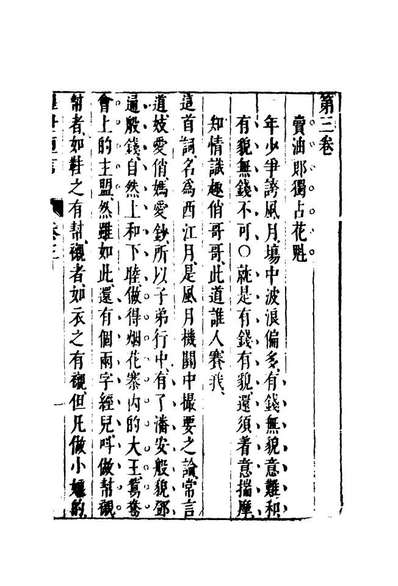 第三卷
賣油郎獨占花魁
年少爭誇風月塲中波浪偏多有錢無貌意難和
有貌無錢不可〇就是有錢有貌還須着意揣摩
知情識趣俏哥哥此道誰人賽我
這首詞名為西江月是風月機關中撮要之論常言
道妓愛俏媽愛鈔所以子弟行中有了潘安般貌鄧
通般錢自然上和下睦做得烟花寨内的大王鴛鴦
會上的主盟然雖如此還有個兩字經兒呌做幫襯
幫者如鞋之有幫襯者如衣之有襯但凡做小娘的
卷三